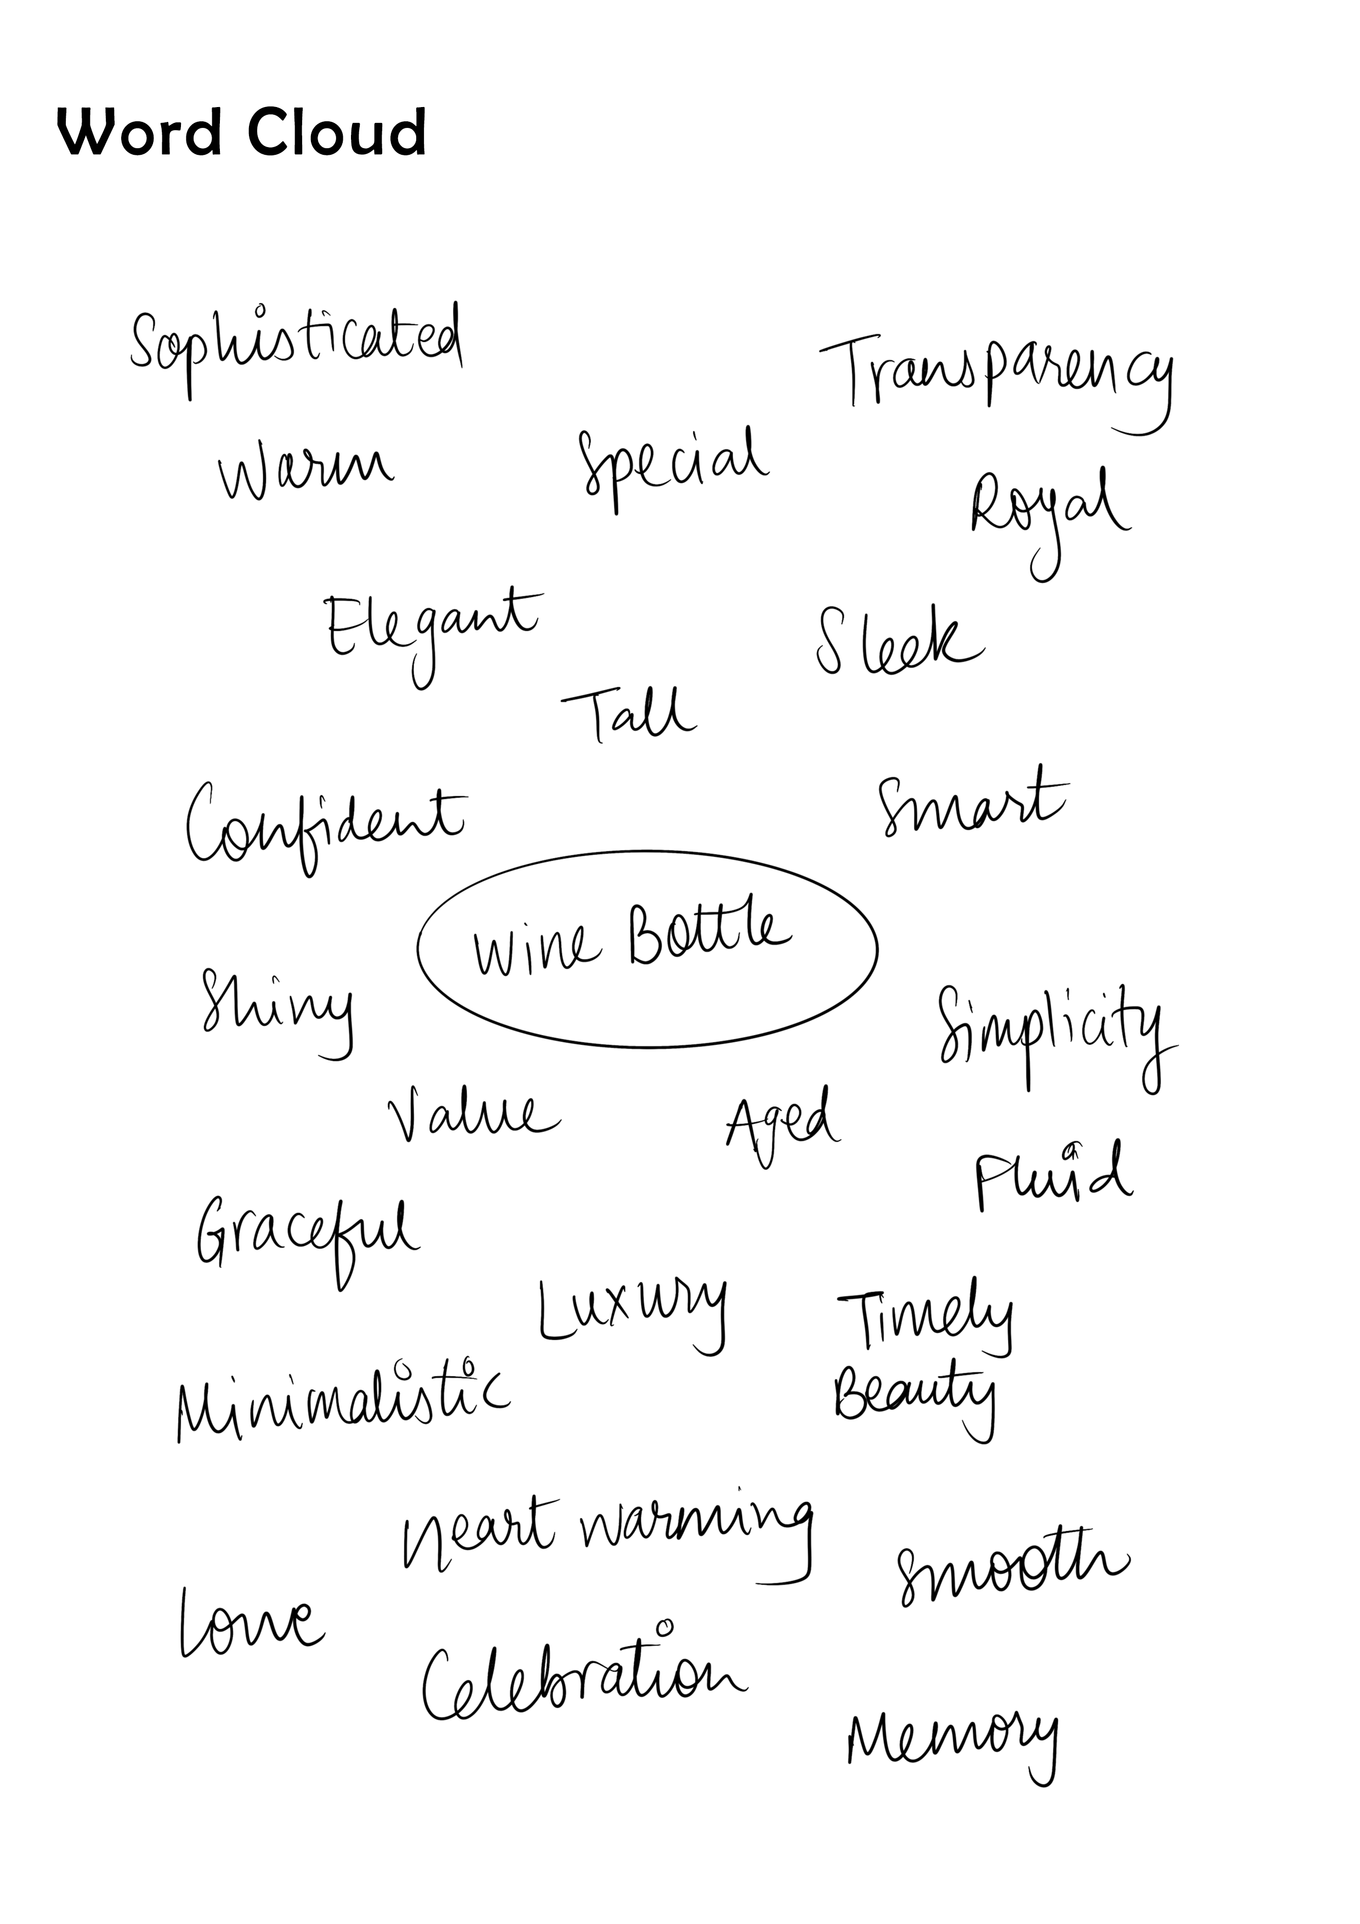 Word Cloud
Sophisticated
Transparency
Warm
Special
Royal
Elegant
Sleek
Tall
Confident
Smart
Wine Bottle
Shiny
Simplicity
Value
Aged
Fluid
Graceful
Luxury
Timely
Beauty
Minimalistic
Heart warming
Smooth
Love
Celebration
Memory